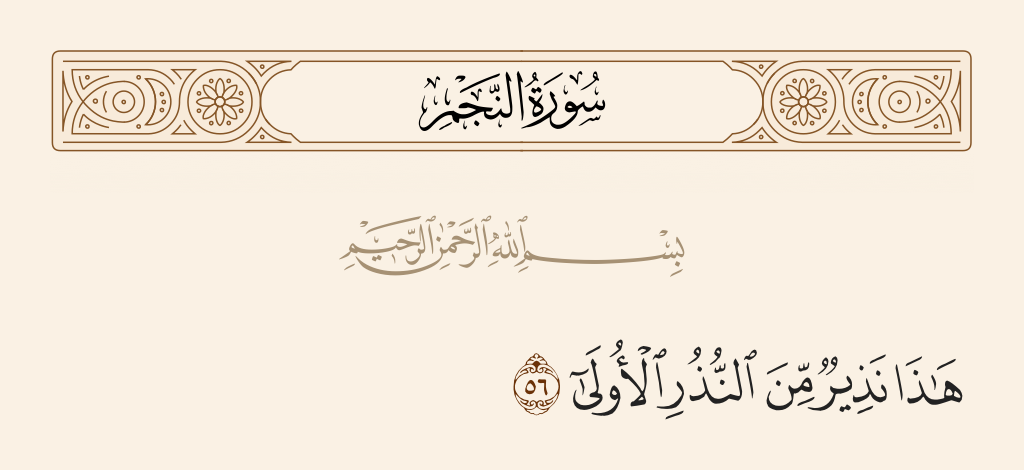 سُورَةُ النَّجْمِ
بِسْمِ ٱللَّهِ ٱلرَّحْمَٰنِ ٱلرَّحِيمِ
هَٰذَا نَذِيرٌ مِّنَ ٱلنُّذُرِ ٱلْأُولَىٰٓ ٥٦